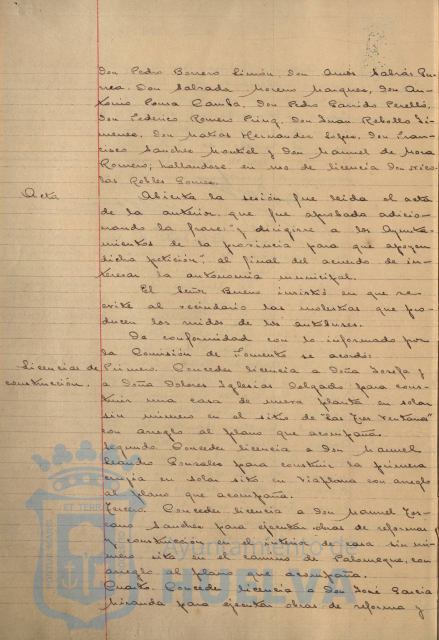 Don Pedro Borrero Limón, Don Amós Sabrás Gu-
rrea, Don Salvador Moreno Marquez, Don An-
tonio Pousa Camba, Don Pedro Garrido Perelló,
Don Federico Romero Pring, Don Juan Rebollo Ji-
menez, Don Matías Hernandez López, Don Fran-
cisco Sanchez Montiel y Don Manuel de Mora
Romero; hallandose en uso de licencia Don Nico-
las Robles Gomez.
Acta Abierta la sesión fue leida el acta
de la anterior que fue aprobada adicio-
nando la frase "y dirigirse a los Ayunta-
mientos de la provincia para que apoyen
dicha petición", al final del acuerdo de in-
teresar la autonomia municipal.
El Señor Bueno insistió en que se
evite al vecindario las molestias que pro-
ducen los ruidos de los autobuses.
De conformidad con lo informado por
la Comisión de Fomento se acordó:
Licencias de Primero. Conceder licencia a Doña Josefa y
construcción. a Doña Dolores Iglesias Delgado para cons-
truir una casa de nueva planta en solar
sin numero en el sitio de "Las Tres Ventanas"
con arreglo al plano que acompaña.
Segundo. Conceder licencia a Don Manuel
Leandro Gonzalez para construir la primera
crujia en solar sito en Viaplana con arreglo
al plano que acompaña.
Tercero. Conceder licencia a Don Manuel Tos-
cano Sanchez para ejecutar obras de reforma
y construcción en el interior de casa sin nú-
mero sita en Camino de Palomeque, con
arreglo al plano que acompaña.
Cuarto. Conceder licencia a Don José Garcia
Miranda para ejecutar obras de reforma y
Ayuntamiento de
HUELVA